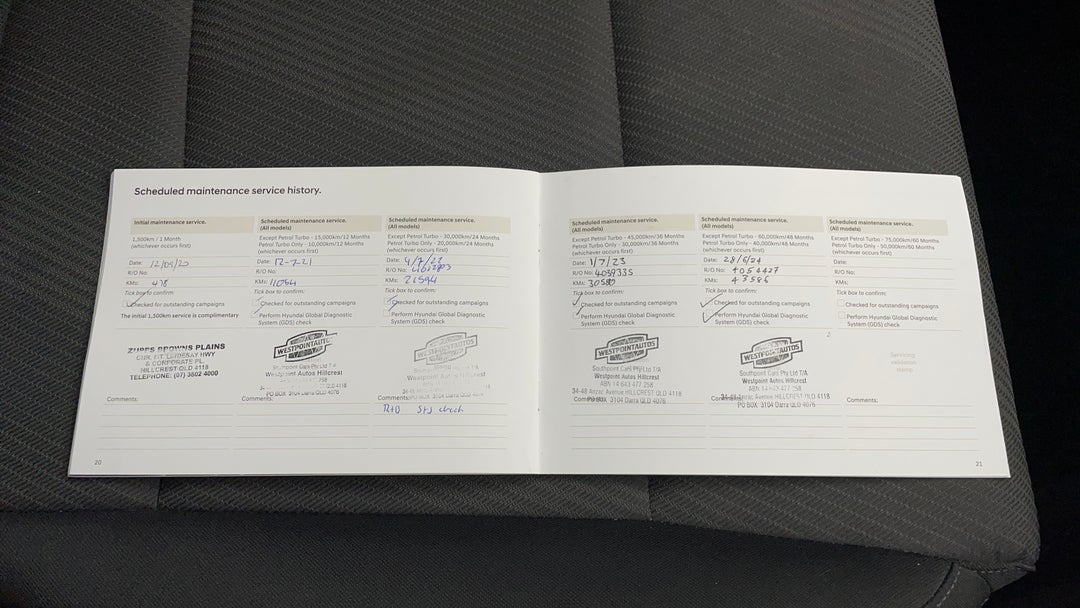 Scheduled maintenance service history.
Initial maintenance service.
1,500km / 1 Month
(whichever occurs first)
Date:
R/O No:
KMs: 478
Tick box to confirm:
Checked for outstanding campaigns
The initial 1,500km service is complimentary
ZUPPS BROWNS PLAINS
CNR. MT. LINDESAY HWY
& CORPORATE PL.
HILLCREST QLD 4118
TELEPHONE: (07) 3802 4000
Comments:
20
Scheduled maintenance service.
(All models)
Except Petrol Turbo - 15,000km/12 Months
Petrol Turbo Only - 10,000km/12 Months
(whichever occurs first)
Date: 12-7-21
R/O No:
KMs:
Tick box to confirm:
Checked for outstanding campaigns
Perform Hyundai Global Diagnostic
System (GDS) check
WESTPOINTAUTOS
Southpoint Cars Pty Ltd T/A
Westpoint Autos Hillcrest
PO BOX 3104 Darra QLD 4076
Comments:
Scheduled maintenance service.
(All models)
Except Petrol Turbo - 30,000km/24 Months
Petrol Turbo Only - 20,000km/24 Months
(whichever occurs first)
Date: 4/7/22
R/O No:
KMs: 21594
Tick box to confirm:
Checked for outstanding campaigns
Perform Hyundai Global Diagnostic
System (GDS) check
WESTPOINTAUTOS
Southpoint Cars Pty Ltd T/A
Westpoint Autos Hillcrest
PO BOX 3104 Darra QLD 4076
Comments:
check
Scheduled maintenance service.
(All models)
Except Petrol Turbo - 45,000km/36 Months
Petrol Turbo Only - 30,000km/36 Months
(whichever occurs first)
Date: 1/7/23
R/O No: 4039335
KMs: 30580
Tick box to confirm:
Checked for outstanding campaigns
Perform Hyundai Global Diagnostic
System (GDS) check
WESTPOINTAUTOS
Southpoint Cars Pty Ltd T/A
Westpoint Autos Hillcrest
ABN 14 643 477 258
34-48 Anzac Avenue HILLCREST QLD 4118
Comments: PO BOX 3104 Darra QLD 4076
Scheduled maintenance service.
(All models)
Except Petrol Turbo - 60,000km/48 Months
Petrol Turbo Only - 40,000km/48 Months
(whichever occurs first)
Date: 28/6/24
R/O No: 4054427
KMs: 43586
Tick box to confirm:
Checked for outstanding campaigns
Perform Hyundai Global Diagnostic
System (GDS) check
WESTPOINTAUTOS
Southpoint Cars Pty Ltd T/A
Westpoint Autos Hillcrest
ABN 14 643 477 258
34-48 Anzac Avenue HILLCREST QLD 4118
Comments: PO BOX 3104 Darra QLD 4076
Scheduled maintenance service.
(All models)
Except Petrol Turbo - 75,000km/60 Months
Petrol Turbo Only - 50,000km/60 Months
(whichever occurs first)
Date:
R/O No:
KMs:
Tick box to confirm:
Checked for outstanding campaigns
Perform Hyundai Global Diagnostic
System (GDS) check
Servicing
validation
stamp
Comments:
21